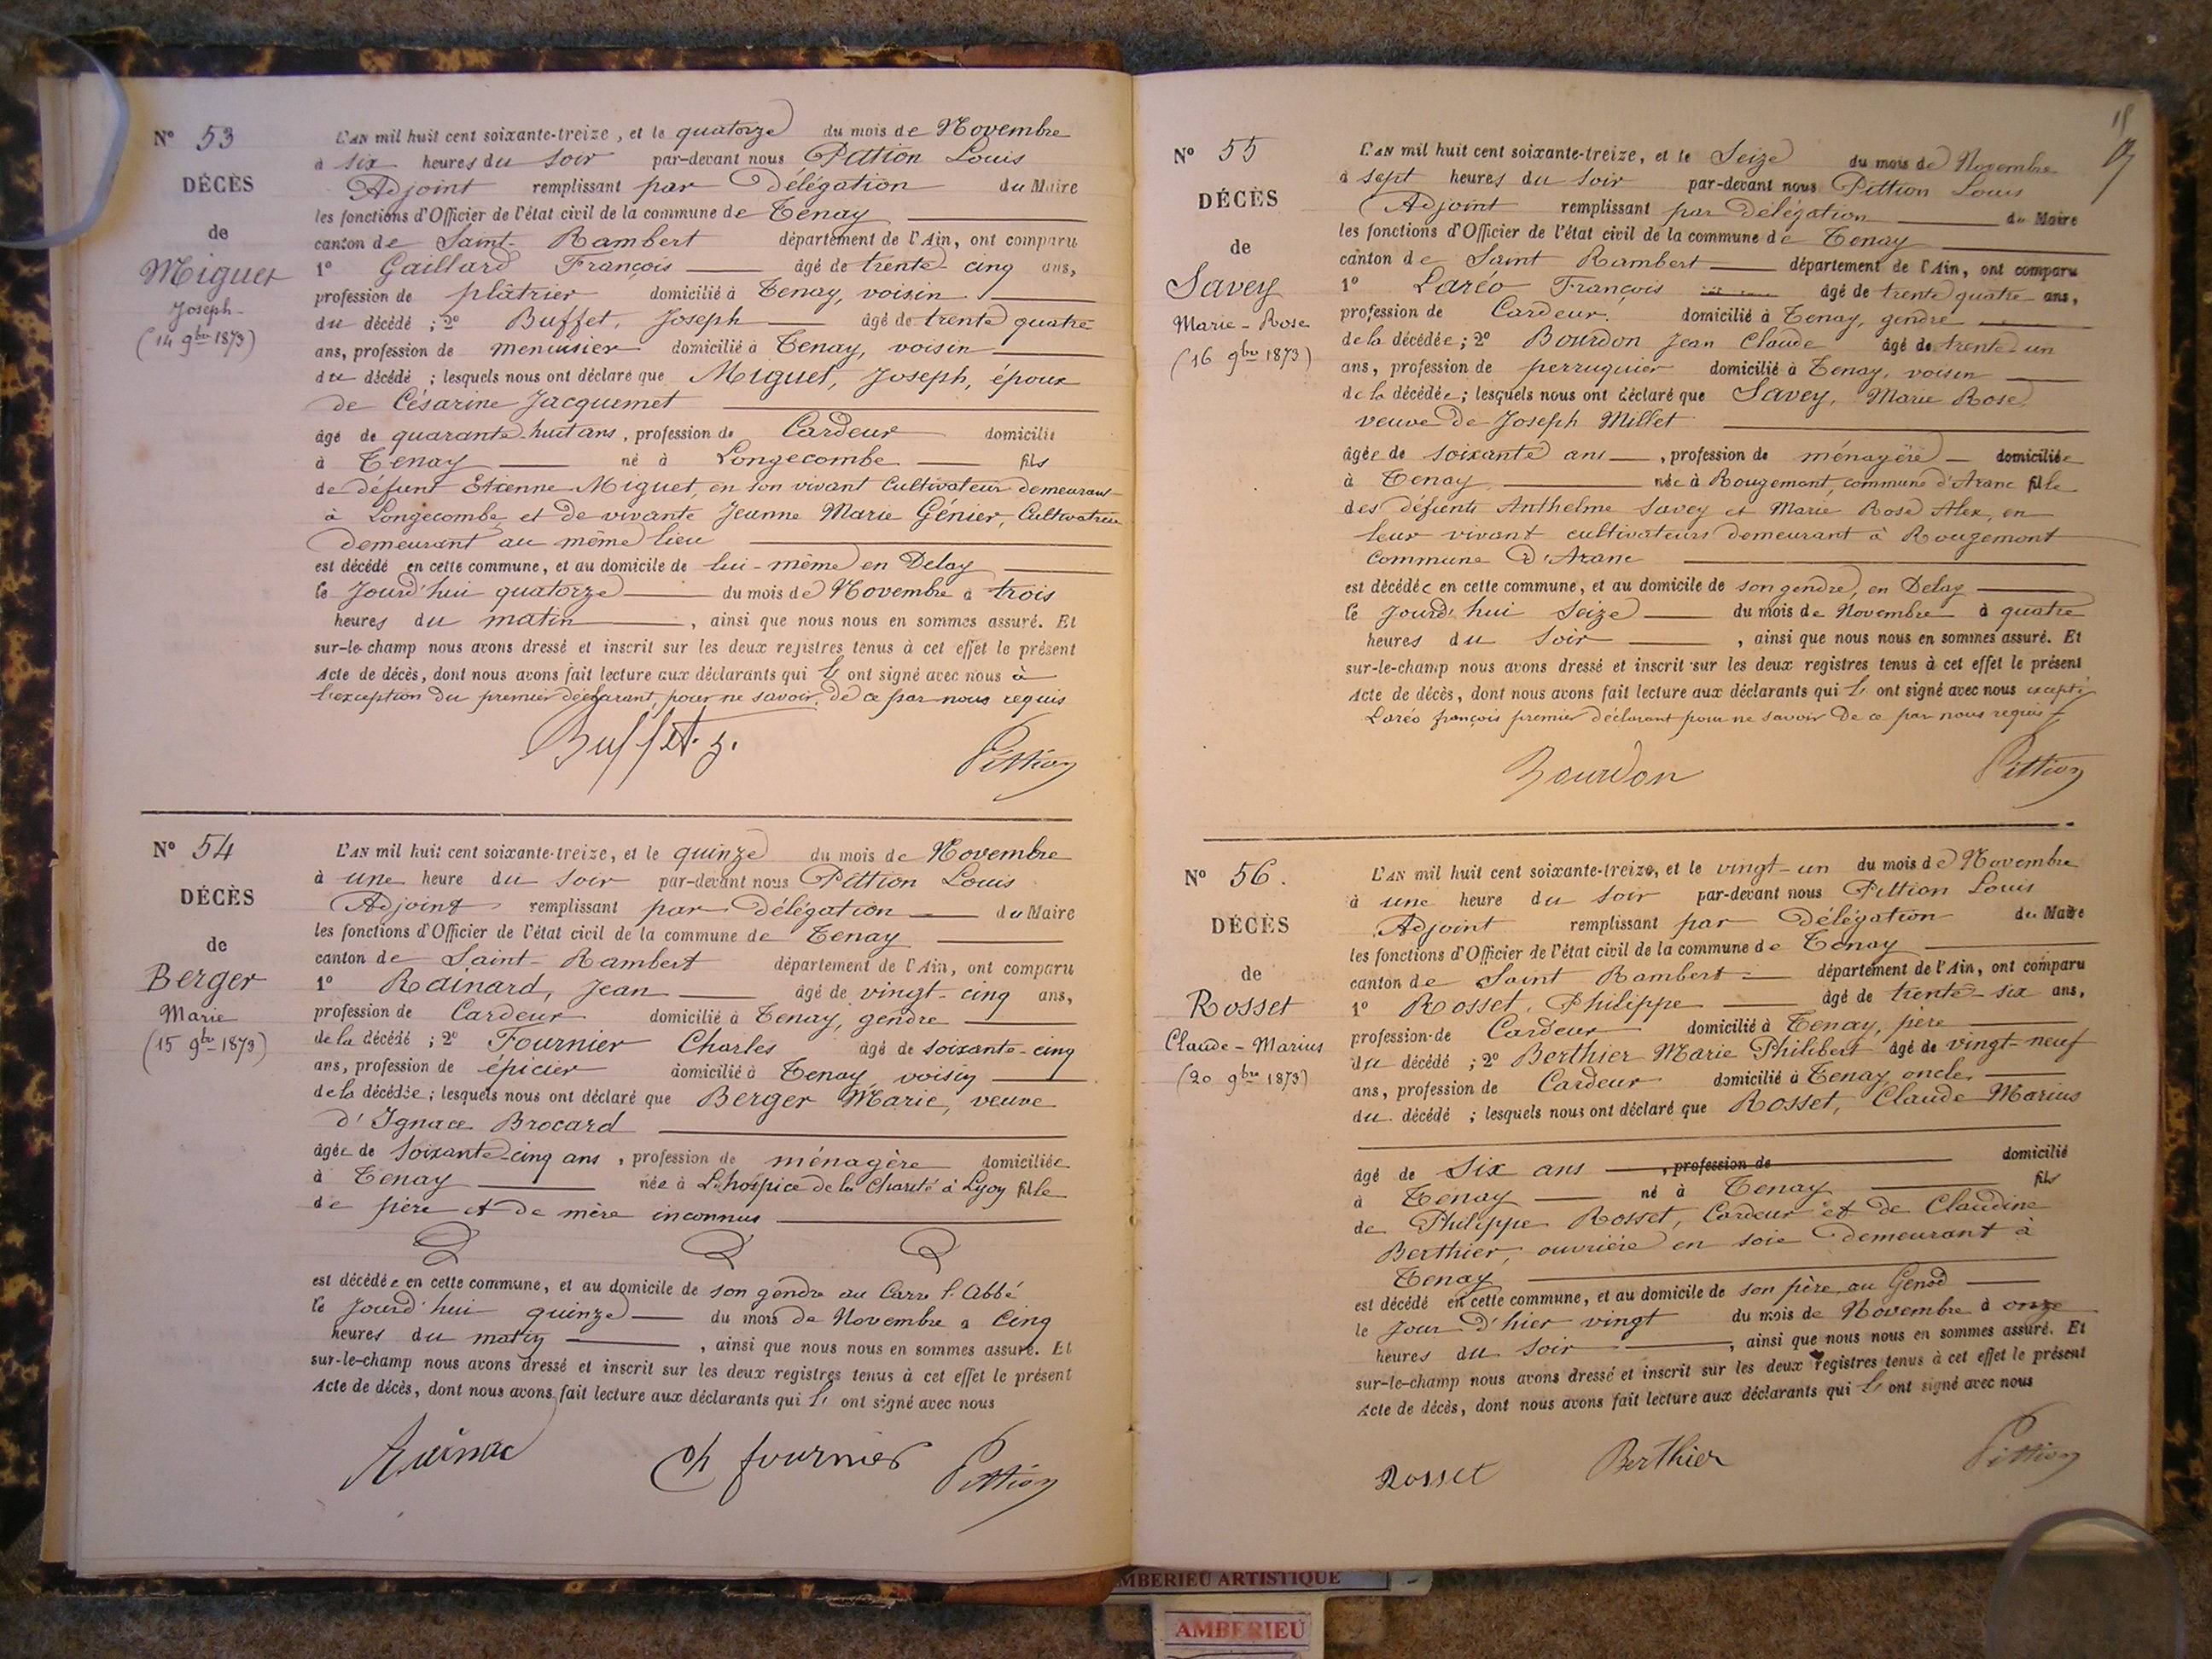 N° 53
DÉCÈS
de
Miguet
Joseph
(14 9bre 1873)
L'AN mil huit cent soixante-treize, et le quatorze du mois de Novembre
à six heures du soir par-devant nous Pittion Louis
Adjoint remplissant par Délégation du Maire
les fonctions d'Officier de l'état civil de la commune de Tenay
canton de Saint-Rambert département de l'Ain, ont comparu
1° Gaillard François âgé de trente-cinq ans,
profession de plâtrier domicilié à Tenay, voisin
du décédé ; 2° Buffet, Joseph âgé de trente quatre
ans, profession de menuisier domicilié à Tenay, voisin
du décédé ; lesquels nous ont déclaré que Miguet, Joseph, époux
de Césarine Jacquemet
âgé de quarante-huit ans, profession de Cardeur domicilié
à Tenay né à Longecombe fils
de défunt Etienne Miguet, en son vivant Cultivateur demeurant
à Longecombe, et de vivante Jeanne Marie Génier, Cultivatrice
demeurant au même lieu
est décédé en cette commune, et au domicile de lui-même en Delay
le Jourd'hui quatorze du mois de Novembre à trois
heures du matin, ainsi que nous nous en sommes assuré. Et
sur-le-champ nous avons dressé et inscrit sur les deux registres tenus à cet effet le présent
Acte de décès, dont nous avons fait lecture aux déclarants qui ont signé avec nous à
l'exception du premier déclarant, pour ne savoir, de ce par nous requis
Buffet J.
Pittion
N° 54
DÉCÈS
de
Berger
Marie
(15 9bre 1873)
L'AN mil huit cent soixante-treize, et le quinze du mois de Novembre
à une heure du soir par-devant nous Pittion Louis
Adjoint remplissant par Délégation du Maire
les fonctions d'Officier de l'état civil de la commune de Tenay
canton de Saint-Rambert département de l'Ain, ont comparu
1° Rainard, Jean âgé de vingt-cinq ans,
profession de Cardeur domicilié à Tenay, gendre
de la décédé ; 2° Fournier Charles âgé de soixante-cinq
ans, profession de épicier domicilié à Tenay voisin
de la décédée ; lesquels nous ont déclaré que Berger Marie, veuve
d'Ignace Brocard
âgée de soixante-cinq ans, profession de ménagère domiciliée
à Tenay née à L'hospice de la Charité à Lyon fille
de père et de mère inconnus
est décédée en cette commune, et au domicile de son gendre au Carre l'Abbé
le Jourd'hui quinze du mois de Novembre à Cinq
heures du matin, ainsi que nous nous en sommes assuré. Et
sur-le-champ nous avons dressé et inscrit sur les deux registres tenus à cet effet le présent
Acte de décès, dont nous avons fait lecture aux déclarants qui ont signé avec nous
Ch fournier
Pittion
N° 55
DÉCÈS
de
Savey
Marie-Rose
(16 9bre 1873)
L'AN mil huit cent soixante-treize, et le Seize du mois de Novembre
à sept heures du soir par-devant nous Pittion Louis
Adjoint remplissant par Délégation du Maire
les fonctions d'Officier de l'état civil de la commune de Tenay
canton de Saint Rambert département de l'Ain, ont comparu
1° Laréo François âgé de trente quatre ans,
profession de Cardeur. domicilié à Tenay, gendre
de la décédée ; 2° Bourdon Jean Claude âgé de trente-un
ans, profession de perruquier domicilié à Tenay, voisin
de la décédée ; lesquels nous ont déclaré que Savey, Marie Rose,
veuve de Joseph Millet
âgée de soixante ans, profession de ménagère domiciliée
à Tenay née à Rougemont, commune d'Aranc fille
des défunts Anthelme Savey et Marie Rose Alex, en
leur vivant cultivateurs demeurant à Rougemont
Commune D'Aranc
est décédée en cette commune, et au domicile de son gendre, en Delay
le Jourd'hui Seize du mois de Novembre à quatre
heures du soir, ainsi que nous nous en sommes assuré. Et
sur-le-champ nous avons dressé et inscrit sur les deux registres tenus à cet effet le présent
Acte de décès, dont nous avons fait lecture aux déclarants qui ont signé avec nous excepté
Laréo françois premier déclarant pour ne savoir De ce par nous requis
Bourdon
Pittion
N° 56.
DÉCÈS
de
Rosset
Claude-Marius
(20 9bre 1873)
L'AN mil huit cent soixante-treize, et le vingt-un du mois de Novembre
à une heure du soir par-devant nous Pittion Louis
Adjoint remplissant par Délégation du Maire
les fonctions d'Officier de l'état civil de la commune de Tenay
canton de Saint Rambert département de l'Ain, ont comparu
1° Rosset, Philippe âgé de trente-six ans,
profession de Cardeur domicilié à Tenay, père
du décédé ; 2° Berthier Marie Philibert âgé de vingt-neuf
ans, profession de Cardeur domicilié à Tenay, oncle
du décédé ; lesquels nous ont déclaré que Rosset, Claude Marius
âgé de Six ans, profession de domicilié
à Tenay né à Tenay fils
de Philippe Rosset, Cardeur et de Claudine
Berthier, ouvrière en soie demeurant à
Tenay
est décédé en cette commune, et au domicile de son père au Genod
le Jour D'hier vingt du mois de Novembre à onze
heures du soir, ainsi que nous nous en sommes assuré. Et
sur-le-champ nous avons dressé et inscrit sur les deux registres tenus à cet effet le présent
Acte de décès, dont nous avons fait lecture aux déclarants qui ont signé avec nous
Rosset
Berthier
Pittion
AMBERIEU ARTISTIQUE
AMBERIEU